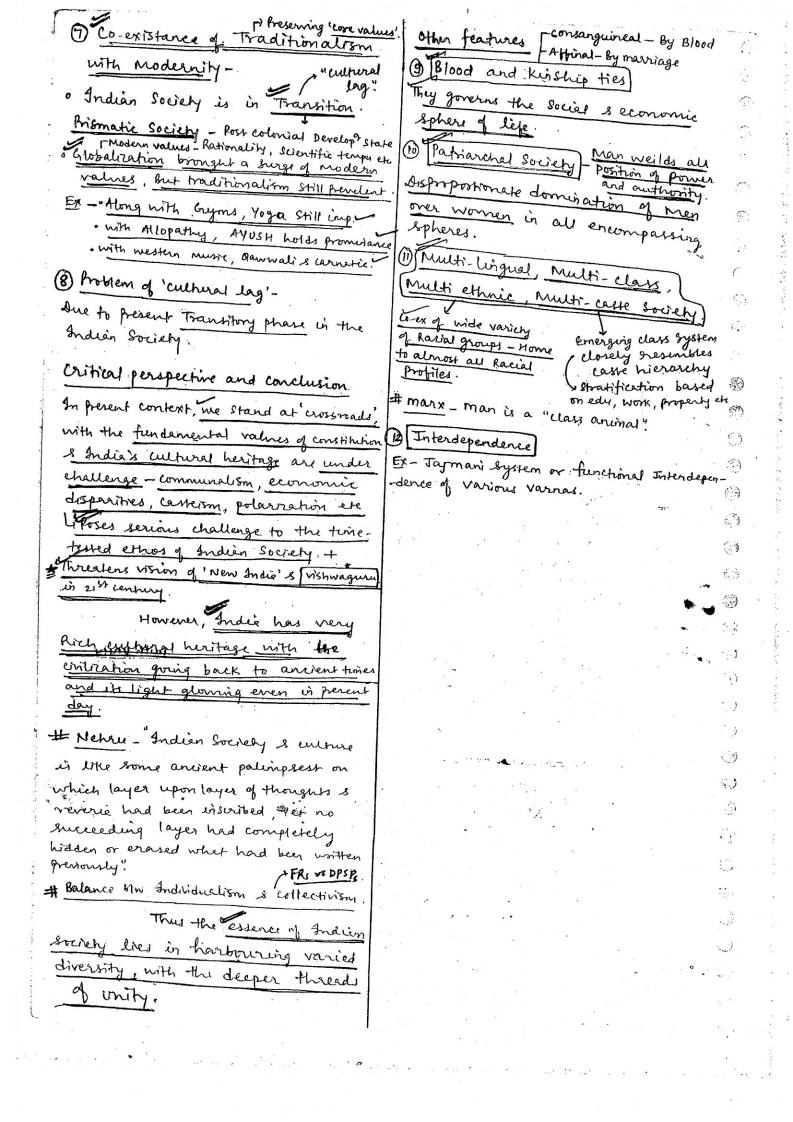 Preserving 'core values'.
⑦ Co-existance of Traditionalism
with Modernity -
"cultural
lag"
• Indian Society is in Transition.
Prismatic Society - Post colonial Develop^g State
Modern values - Rationality, Scientific temper etc
• Globalization brought a surge of modern
values, But traditionalism still prevelent.
Ex - • Along with Gyms, Yoga Still imp.
• with Allopathy, AYUSH holds prominance
• with western music, Qawwali & Carnetic.
⑧ Problem of 'cultural lag' -
Due to present Transitory phase in the
Indian Society.
Critical perspective and conclusion
In present context, we stand at 'crossroads',
with the fundamental values of constitution
& India's cultural heritage are under
challenge - communalism, economic
disparities, Casteism, polarization etc
Poses serious challenge to the time-
tested ethos of Indian Society. +
* Threatens vision of 'New India' & vishwaguru
in 21st century.
However, India has very
Rich cultural heritage with the
civilization going back to ancient times
and its light glowing even in present
day.
# Nehru - "Indian Society & culture
is like some ancient palimpsest on
which layer upon layer of thoughts &
reverie had been inscribed, Yet no
succeeding layer had completely
hidden or erased what had been written
previously".
FRs vs DPSPs
# Balance b/w Individualism & collectivism.
Thus the essence of Indian
society lies in harbouring varied
diversity, with the deeper threads
of unity.
Other features
Consanguineal - By Blood
Affinal - By marriage
⑨ Blood and Kinship ties
They governs the Social & economic
sphere of life.
⑩ Patriarchal Society - Man weilds all
Position of power
and authority.
Disproportionate domination of Men
over women in all encompassing
spheres.
⑪ Multi-lingual, Multi-class,
Multi ethnic, Multi-caste Society
Co-ex of wide variety
of Racial groups - Home
to almost all Racial
profiles.
Emerging class System
closely resembles
caste hierarchy
stratification based
on edu, work, property etc
# Marx - Man is a "class animal".
⑫ Interdependence
Ex - Jajmani System or functional Interdepen-
-dence of various varnas.